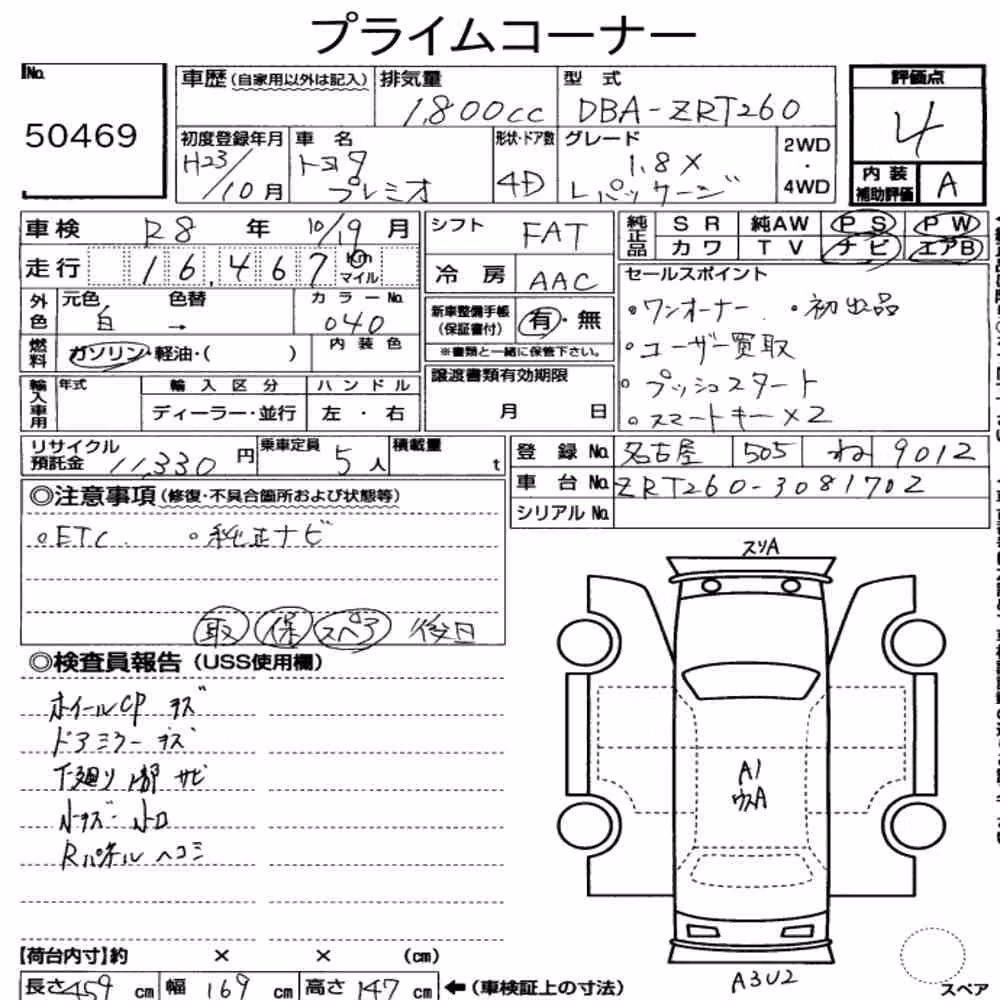 プライムコーナー
No. 50469
車歴(自家用以外は記入)
排気量 1,800cc
型式 DBA-ZRT260
評価点 4
内装補助評価 A
初度登録年月 H23/10月
車名 トヨタ プレミオ
形状・ドア数 4D
グレード 1.8X Lパッケージ
2WD・4WD
車検 R8年10/19月
走行 16,467 Km マイル
外色 元色 白 色替 → カラーNo. 040
燃料 ガソリン・軽油・( ) 内装色
輸入車用 年式 輸入区分 ディーラー・並行 ハンドル 左・右
シフト FAT
冷房 AAC
新車整備手帳(保証書付) 有・無
※書類と一緒に保管下さい。
譲渡書類有効期限 月 日
純正品 SR 純AW PS PW
カワ TV ナビ エアB
セールスポイント
・ワンオーナー ・初出品
・ユーザー買取
・プッシュスタート
・スマートキー×2
リサイクル預託金 11,330円
乗車定員 5人
積載量 t
登録No. 名古屋 505 ね 9012
車台No. ZRT260-3081702
シリアルNo.
◎注意事項(修復・不具合箇所および状態等)
・ETC ・純正ナビ
取 保 スペア 後日
◎検査員報告(USS使用欄)
ホイールCP キズ
ドアミラーキズ
下廻り1部サビ
小キズ・小凹
Rパネルヘコミ
スリA
A1
ウスA
A3U2
スペア
【荷台内寸】約 × × (cm)
長さ459cm 幅169cm 高さ147cm ←(車検証上の寸法)